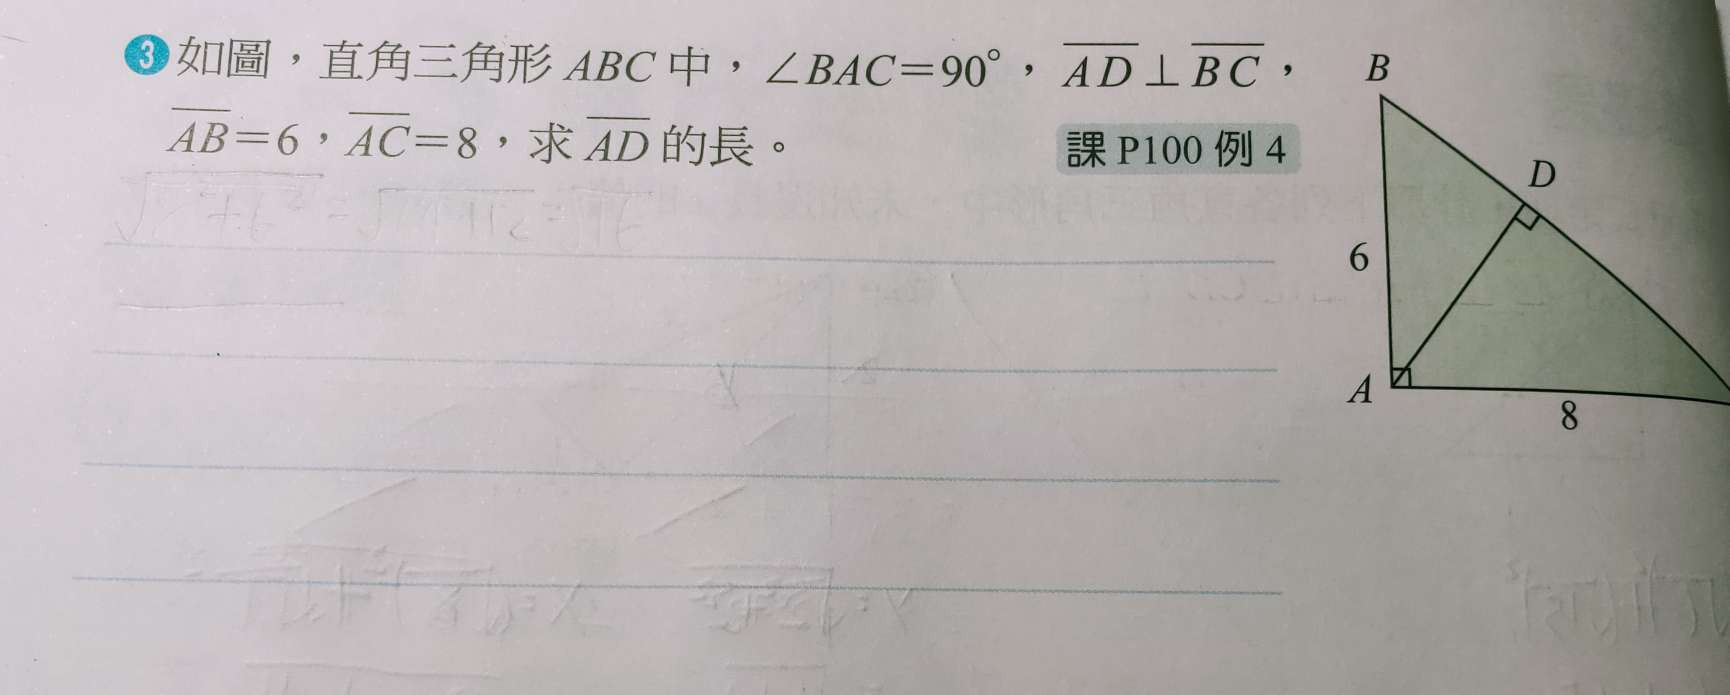 3 如圖，直角三角形 ABC 中，∠BAC=90°，AD⊥BC，
AB=6，AC=8，求 AD 的長。
課 P100 例 4
B
D
6
A
8